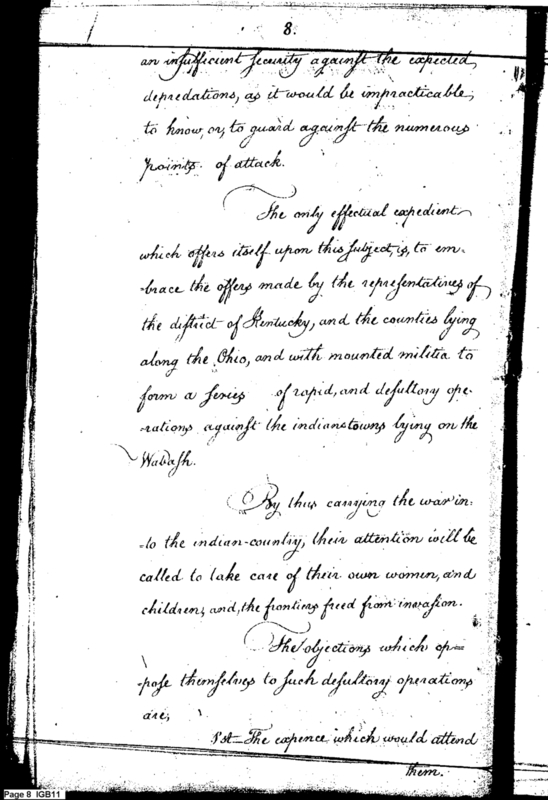 8.
an insufficient security against the expected
depredations, as it would be impracticable,
to know, or, to guard against the numerous
points of attack.
The only effectual expedient
which offers itself upon this subject, is, to em-
-brace the offers made by the representatives of
the district of Kentucky, and the counties lying
along the Ohio, and with mounted militia to
form a series of rapid, and desultory ope-
-rations against the indians towns lying on the
Wabash.
By thus carrying the war in=
=to the indian-country, their attention will be
called to take care of their own women, and
children; and, the frontiers freed from invasion.
The objections which op=
-pose themselves to such desultory operations
are,
1st— The expence which would attend
them.
Page 8 IGB11